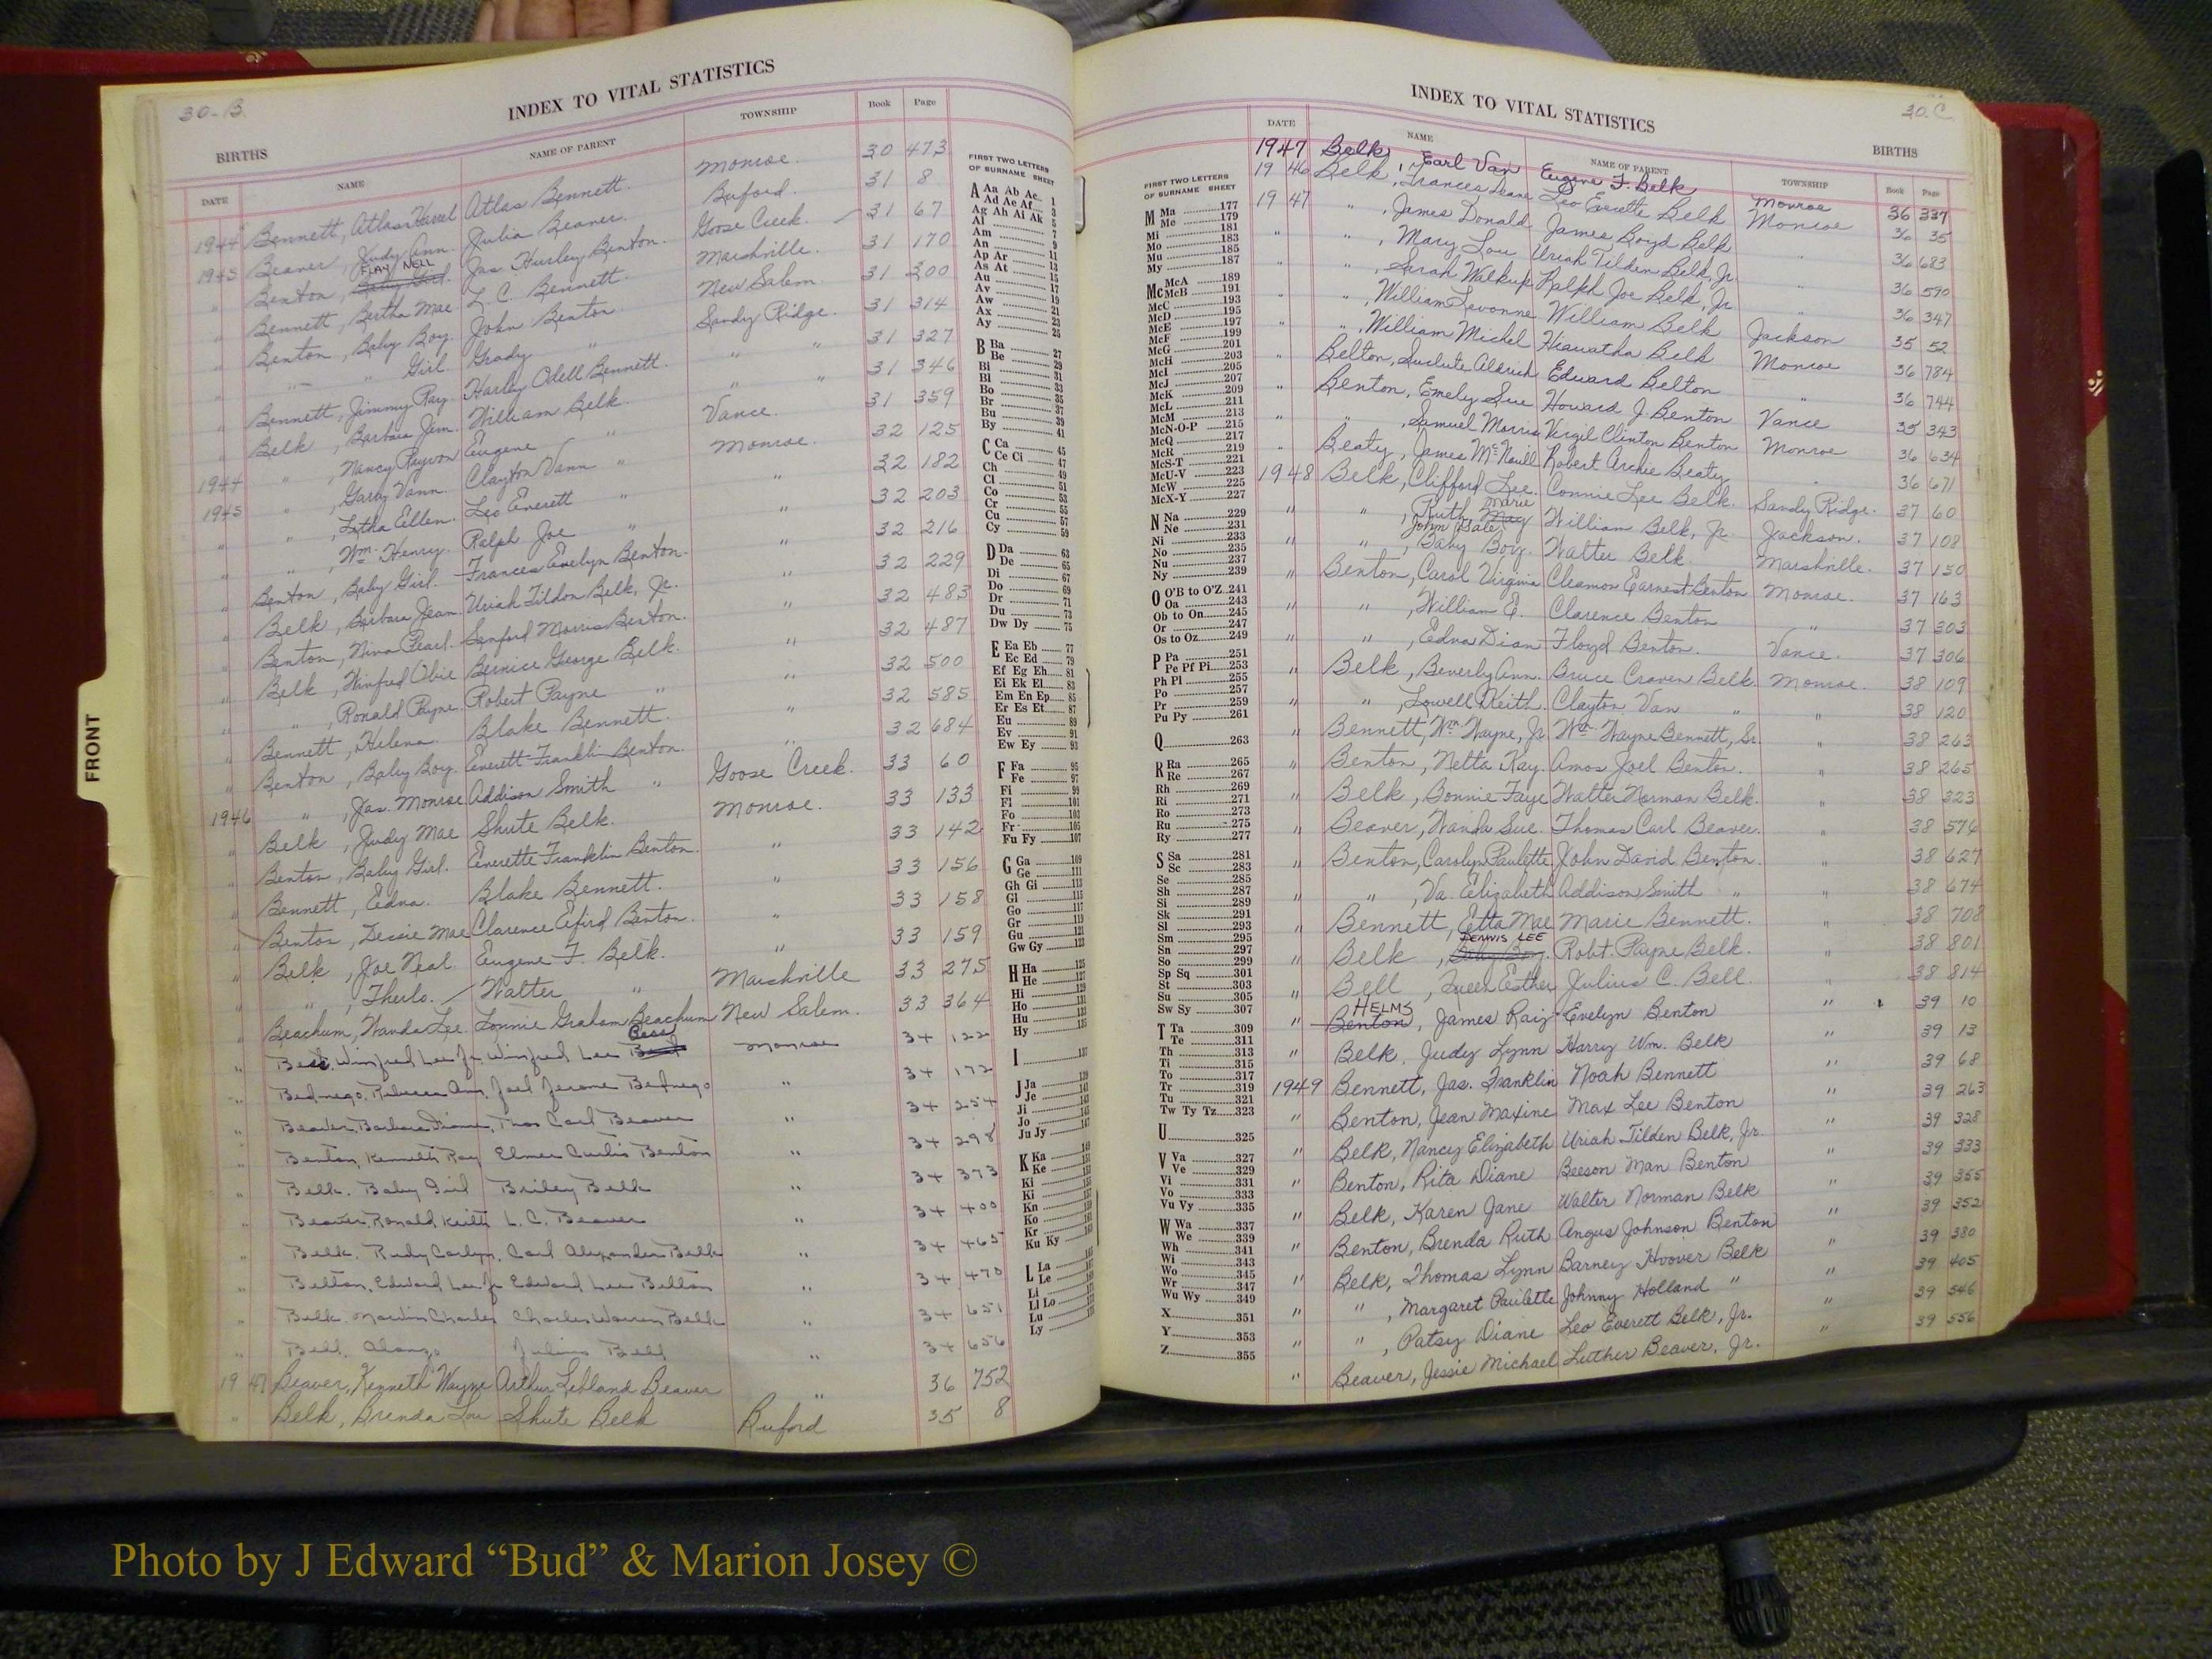 30-B.
INDEX TO VITAL STATISTICS
BIRTHS
DATE NAME NAME OF PARENT TOWNSHIP Book Page
1944 Bennett, Atlas Atlas Bennett. Monroe. 30 473
1945 Beaver, Judy Ann. Julia Beaver. Buford. 31 8
FLAY NELL
" Benton, Jas. Hurley Benton. Goose Creek. 31 67
" Bennett, Bertha Mae L. C. Bennett. Marshville. 31 170
" Benton, Baby Boy. John Benton. New Salem. 31 200
" " " Girl. Grady " Sandy Ridge. 31 314
" Bennett, Jimmy Ray. Harley Odell Bennett. " " 31 327
" Belk, Barbara Jean. William Belk. " " 31 346
1944 " , Nancy Rayvon Eugene " Vance. 31 359
1945 " , Garry Vann. Clayton Vann " Monroe. 32 125
" " , Letha Ellen. Leo Everett " " 32 182
" " , Wm. Henry. Ralph Joe " " 32 203
" Benton, Baby Girl. Frances Evelyn Benton. " 32 216
" Belk, Barbara Jean. Uriah Tildon Belk, Jr. " 32 229
" Benton, Nina Pearl. Sanford Morris Benton. " 32 483
" Belk, Winfred Obie Bernice George Belk. " 32 487
" " , Ronald Payne. Robert Payne " " 32 500
" Bennett, Helena. Blake Bennett. " 32 585
" Benton, Baby Boy. Everett Franklin Benton. " 32 684
1946 " , Jas. Monroe Addison Smith " Goose Creek. 33 60
" Belk, Judy Mae Shute Belk. Monroe. 33 133
" Benton, Baby Girl. Everette Franklin Benton. " 33 142
" Bennett, Edna. Blake Bennett. " 33 156
" Benton, Dessie Mae Clarence Efird Benton. " 33 158
" Belk, Joe Neal Eugene F. Belk. " 33 159
" " , Therlo. Walter " Marshville 33 275
" Beachum, Wanda Lee. Lonnie Graham Beachum New Salem. 33 364
" Winfred Lee Jr. Winfred Lee Monroe 34 122
" Bednego, Rebecca Ann, Joel Jerome Bednego " 34 172
" Beaver, Barbara Diann, Thos Carl Beaver " 34 254
" Benton, Kenneth Ray Elmer Curtis Benton " 34 298
" Belk. Baby Girl Briley Belk " 34 373
" Beaver, Ronald Keith L. C. Beaver " 34 400
" Belk. Rudy Carlyn, Carl Alexander Belk " 34 465
" Belton, Edward Lee Jr Edward Lee Belton " 34 470
" Belk. Marvin Charles Charles Warren Belk " 34 651
" Bell, Alonzo Julius Bell " 34 656
1947 Beaver, Kenneth Wayne Arthur Beaver " 36 752
" Belk, Brenda Lou Shute Belk Buford 35 8
FIRST TWO LETTERS
OF SURNAME SHEET
A Aa Ab Ac 1
Ad Ae Af 3
Ag Ah Ai Ak 5
Al 7
Am 9
An 11
Ap Ar 13
As At 15
Au 17
Av 19
Aw 21
Ax 23
Ay 25
B Ba 27
Be 29
Bi 31
Bl 33
Bo 35
Br 37
Bu 39
By 41
C Ca 45
Ce Ci 47
Ch 49
Cl 51
Co 53
Cr 55
Cu 57
Cy 59
D Da 63
De 65
Di 67
Do 69
Dr 71
Du 73
Dw Dy 75
E Ea Eb 77
Ec Ed 79
Ef Eg Eh 81
Ei Ek El 83
Em En Ep 85
Er Es Et 87
Eu 89
Ev 91
Ew Ey 93
F Fa 95
Fe 97
Fi 99
Fl 101
Fo 103
Fr 105
Fu Fy 107
G Ga 109
Ge 111
Gh Gi 113
Gl 115
Go 117
Gr 119
Gu 121
Gw Gy 123
H Ha 125
He 127
Hi 129
Ho 131
Hu 133
Hy 135
I 137
J Ja 139
Je 141
Ji 143
Jo 145
Ju Jy 147
K Ka 149
Ke 151
Ki
Ki
Kn
Ko
Kr
Ku Ky
L La
Le
Li
Ll Lo
Lu
Ly
FRONT
30.C
INDEX TO VITAL STATISTICS
BIRTHS
DATE NAME NAME OF PARENT TOWNSHIP Book Page
1947 Belk, Earl Van Eugene F. Belk Monroe 36 337
1946 Belk, Frances Leo Everette Belk Monroe 36 35
1947 " , James Donald James Boyd Belk " 36 683
" " , Mary Lou Uriah Tilden Belk, Jr. " 36 590
" " , Sarah Walkup Ralph Joe Belk, Jr. " 36 347
" " , William Levonne William Belk Jackson 35 52
" " , William Michel Hiawatha Belk Monroe 36 784
" Belton, Aldrich Edward Belton " 36 744
" Benton, Emely Sue Howard J. Benton Vance 35 343
" " , Samuel Morris Virgil Clinton Benton Monroe 36 634
" Beaty, James McNeill Robert Archie Beaty " 36 671
1948 Belk, Clifford Lee. Connie Lee Belk. Sandy Ridge. 37 60
" " , Ruth Marie William Belk, Jr. Jackson. 37 108
John Dale
" " , Baby Boy. Walter Belk. Marshville. 37 150
" Benton, Carol Virginia Cleamon Earnest Benton Monroe. 37 163
" " , William E. Clarence Benton " 37 303
" " , Edna Dian Floyd Benton. Vance. 37 306
" Belk, Beverly Ann. Bruce Craven Belk. Monroe. 38 109
" " , Lowell Keith. Clayton Van " " 38 120
" Bennett, Wm. Wayne, Jr. Wm. Wayne Bennett, Sr. " 38 263
" Benton, Netta Kay. Amos Joel Benton. " 38 265
" Belk, Bonnie Faye Walter Norman Belk. " 38 323
" Beaver, Wanda Sue. Thomas Carl Beaver. " 38 576
" Benton, Carolyn Paulette John David Benton. " 38 627
" " , Va. Elizabeth Addison Smith " " 38 674
" Bennett, Etta Mae Marie Bennett. " 38 708
DENNIS LEE
" Belk, Baby Boy. Robt. Payne Belk. " 38 801
" Bell, Queen Esther Julius C. Bell. " 38 814
HELMS
" Benton, James Raiz Evelyn Benton " 39 10
" Belk, Judy Lynn Harry Wm. Belk " 39 13
1949 Bennett, Jas. Franklin Noah Bennett " 39 68
" Benton, Jean Maxine Max Lee Benton " 39 263
" Belk, Nancy Elizabeth Uriah Tilden Belk, Jr. " 39 328
" Benton, Rita Diane Beeson Man Benton " 39 333
" Belk, Karen Jane Walter Norman Belk " 39 355
" Benton, Brenda Ruth Angus Johnson Benton " 39 352
" Belk, Thomas Lynn Barney Hoover Belk " 39 380
" " , Margaret Paulette Johnny Holland " " 39 405
" " , Patsy Diane Leo Everett Belk, Jr. " 39 546
" Beaver, Jessie Michael Luther Beaver, Jr. " 39 556
FIRST TWO LETTERS
OF SURNAME SHEET
M Ma 177
Me 179
Mi 181
Mo 183
Mu 185
My 187
Mc McA 189
McB 191
McC 193
McD 195
McE 197
McF 199
McG 201
McH 203
McI 205
McJ 207
McK 209
McL 211
McM 213
McN-O-P 215
McQ 217
McR 219
McS-T 221
McU-V 223
McW 225
McX-Y 227
N Na 229
Ne 231
Ni 233
No 235
Nu 237
Ny 239
O O'B to O'Z 241
Oa 243
Ob to On 245
Or 247
Os to Oz 249
P Pa 251
Pe Pf Pi 253
Ph Pl 255
Po 257
Pr 259
Pu Py 261
Q 263
R Ra 265
Re 267
Rh 269
Ri 271
Ro 273
Ru 275
Ry 277
S Sa 281
Sc 283
Se 285
Sh 287
Si 289
Sk 291
Sl 293
Sm 295
Sn 297
So 299
Sp Sq 301
St 303
Su 305
Sw Sy 307
T Ta 309
Te 311
Th 313
Ti 315
To 317
Tr 319
Tu 321
Tw Ty Tz 323
U 325
V Va 327
Ve 329
Vi 331
Vo 333
Vu Vy 335
W Wa 337
We 339
Wh 341
Wi 343
Wo 345
Wr 347
Wu Wy 349
X 351
Y 353
Z 355
Photo by J Edward “Bud” & Marion Josey ©